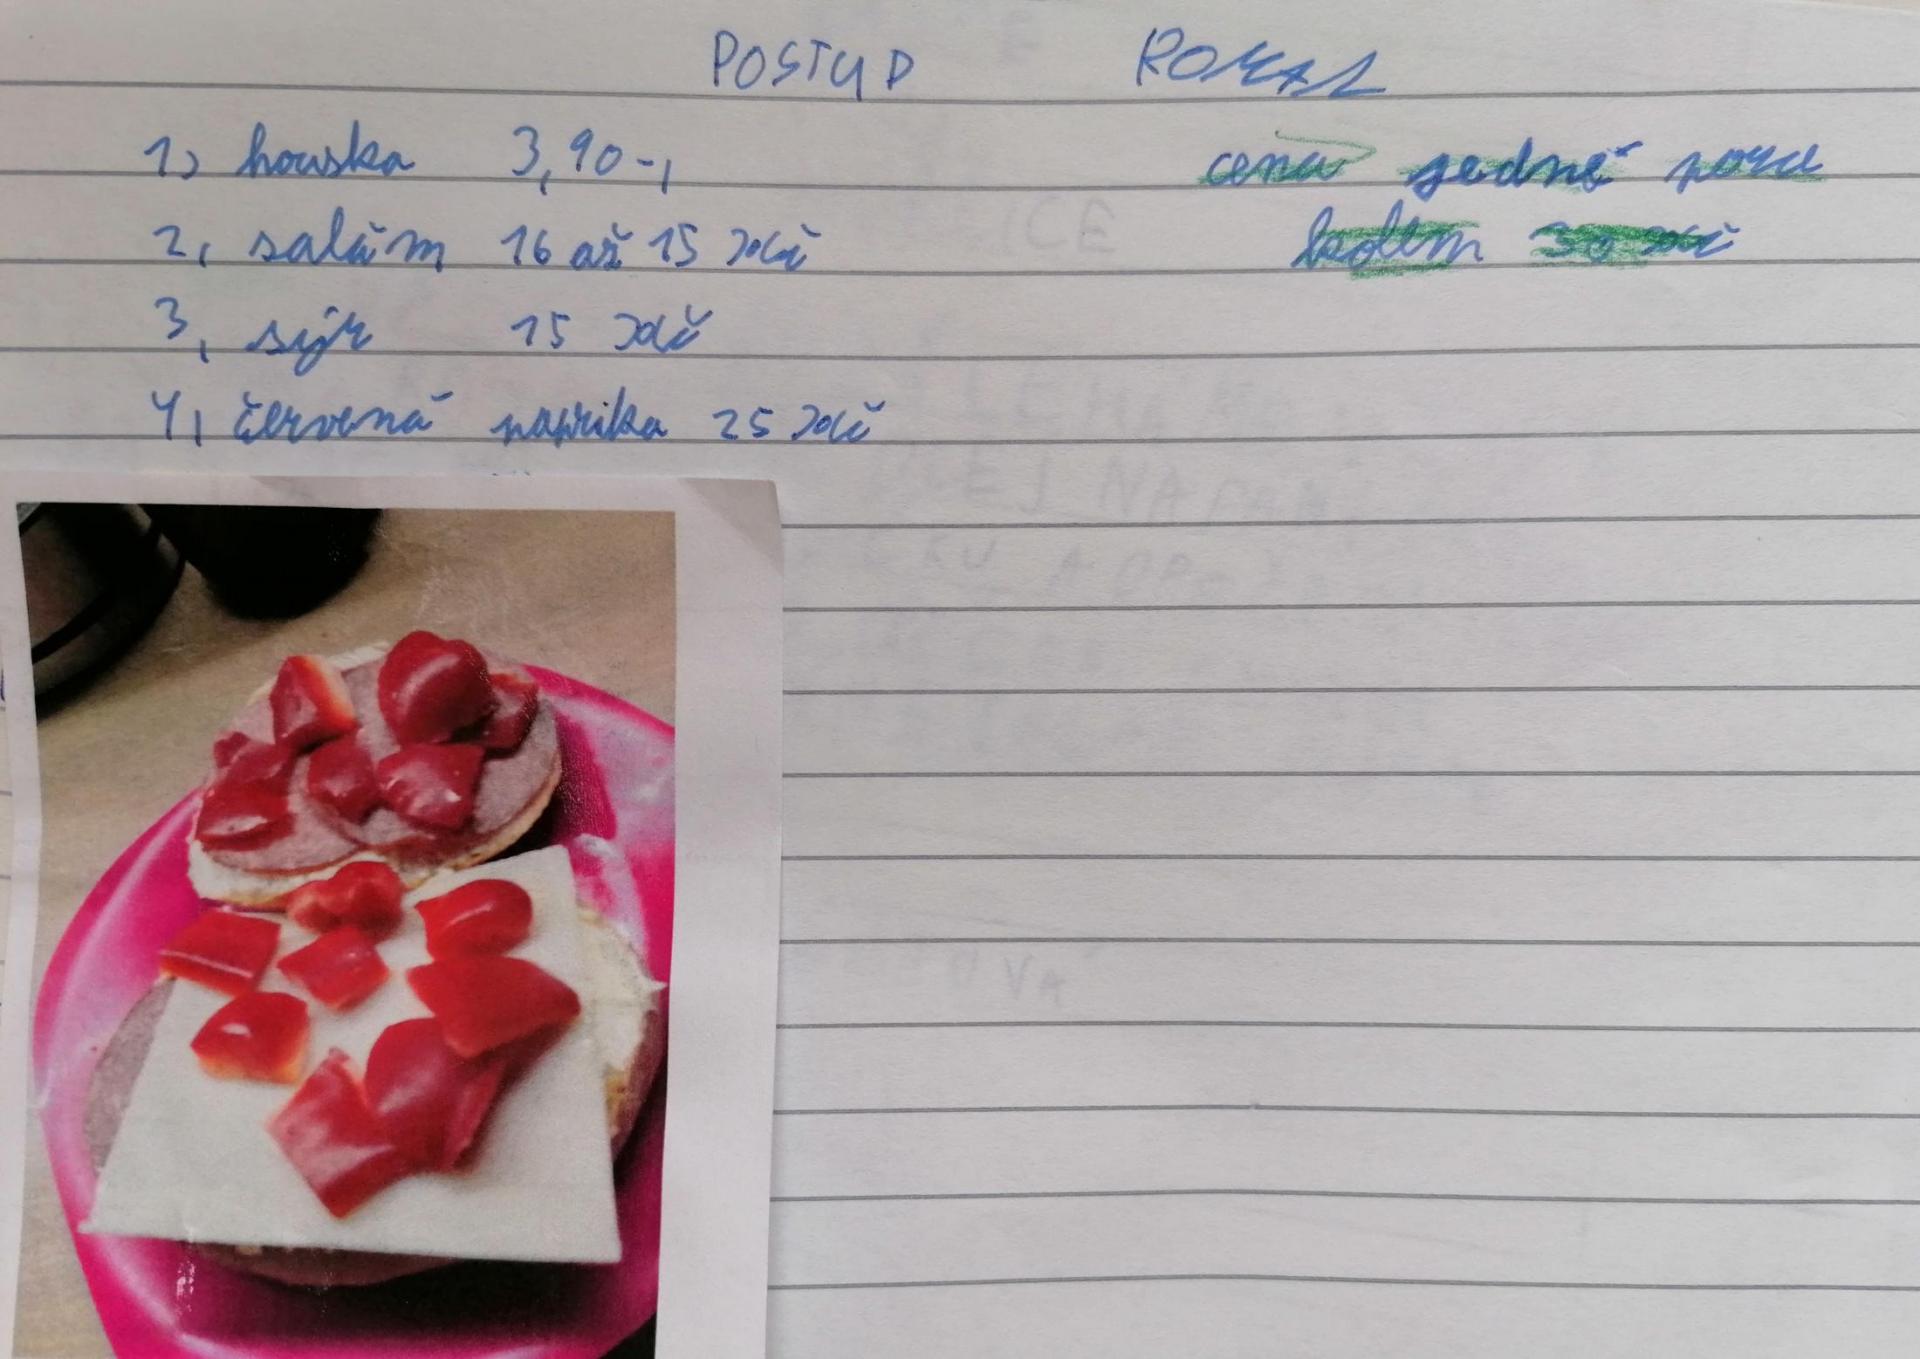 POSTUP ROMAN
1, houska 3,90-,
2, salám 16 až 15 Kč
3, sýr 15 Kč
4, červená paprika 25 Kč
cena jedné porce
kolem 30 Kč